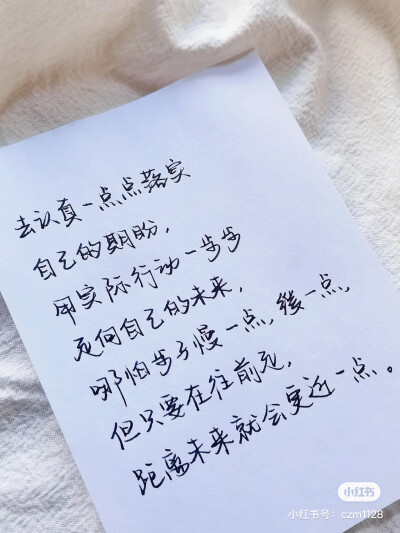 去认真一点点落实
自己的期盼，
用实际行动一步步
走向自己的未来，
哪怕步子慢一点，缓一点，
但只要在往前走，
距离未来就会更近一点。
小红书
小红书号：czm1128